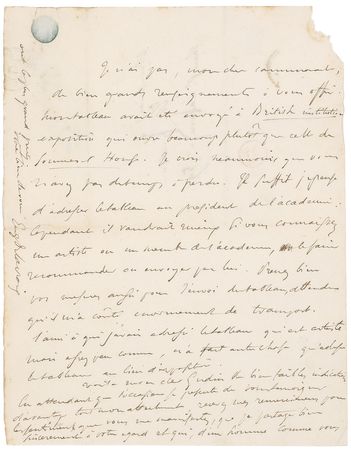 Je n'ai pas, mon cher commensal,
de bien grands renseignements à vous offrir.
mon tableau avait été envoyé à British institution
exposition qui ouvre beaucoup plutôt que celle de
Sommerset House. Je crois néanmoins que vous
n'avez pas de temps à perdre. Il suffit je pense
d'adresser le tableau au président de l'académie:
Cependant il vaudrait mieux si vous connaissiez
un artiste ou un membre de l'académie, le faire
recommander ou envoyer par lui. Prenez bien
vos mesures aussi pour l'envoi du tableau, attendu
qu'il m'a coûté énormement de transport.
L'ami à qui j'avais adressé le tableau qui est artiste
mais assez peu connu, n'a fait autre chose qu'adresser
le tableau au lieu d'exposition.
Voilà mon cher Gudin de bien faibles indications
En attendant que l'occasion se présente de
davantage tout mon absolument recevez mes remerciements pour
les sentiments que vous me manifestez, que je partage bien
sincèrement à votre égard et qui, d'un homme comme vous
ont le plus grand prix
Eug Delacroix